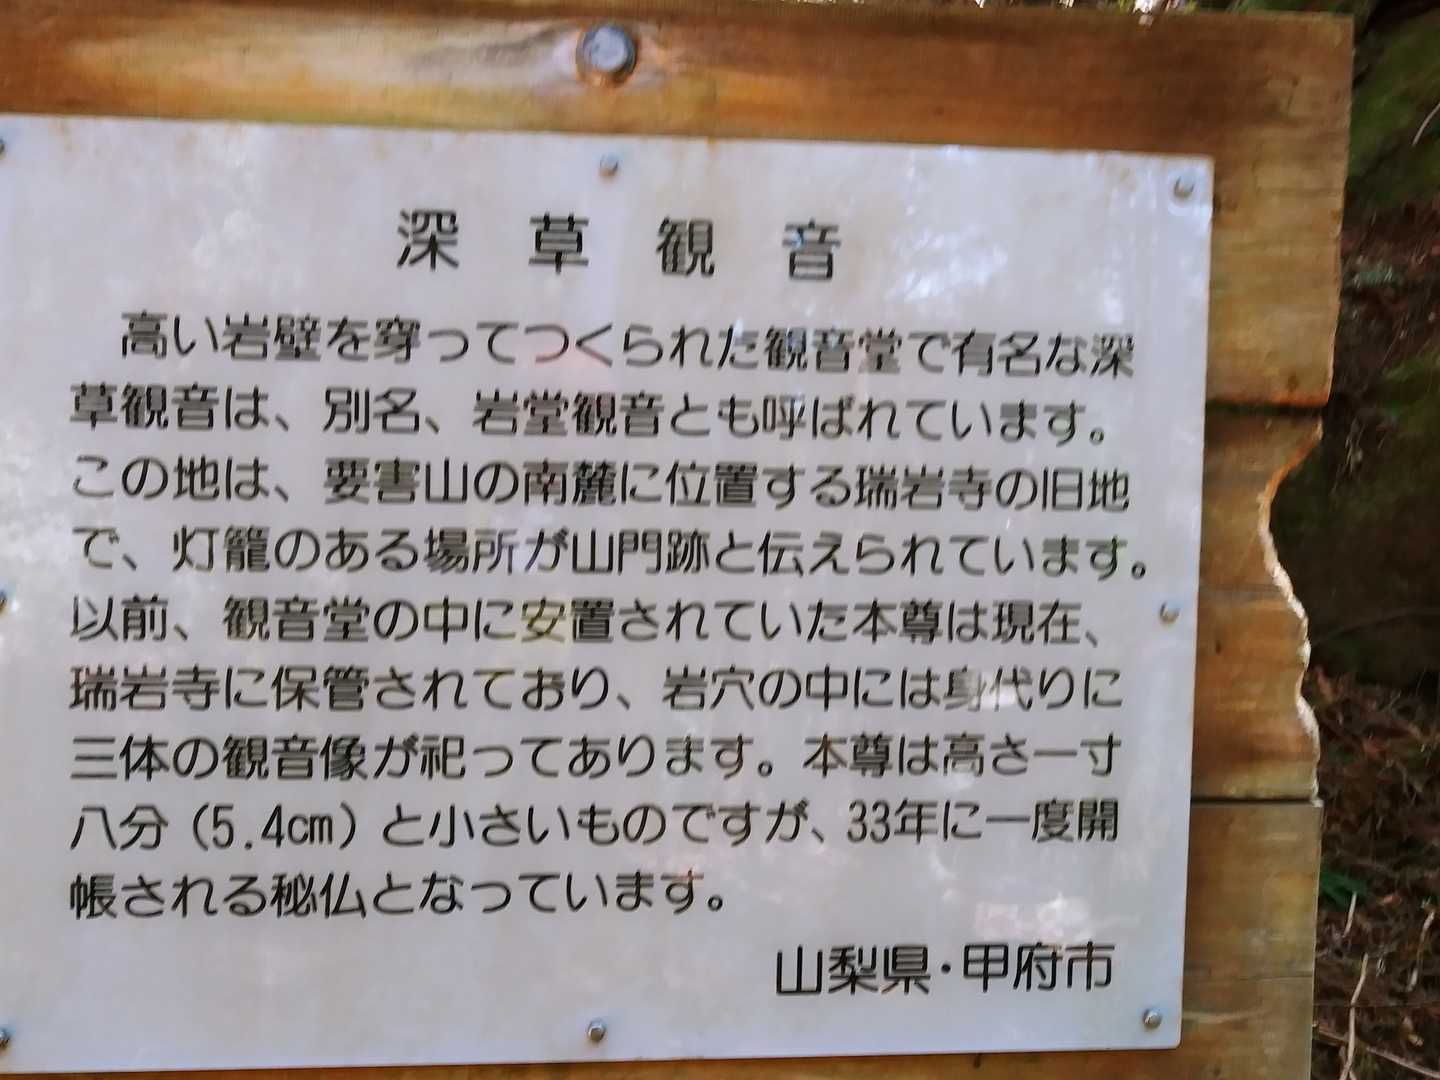 深草観音
高い岩壁を穿ってつくられた観音堂で有名な深
草観音は、別名、岩堂観音とも呼ばれています。
この地は、要害山の南麓に位置する瑞岩寺の旧地
で、灯籠のある場所が山門跡と伝えられています。
以前、観音堂の中に安置されていた本尊は現在、
瑞岩寺に保管されており、岩穴の中には身代りに
三体の観音像が祀ってあります。本尊は高さ一寸
八分（5.4cm）と小さいものですが、33年に一度開
帳される秘仏となっています。
山梨県・甲府市